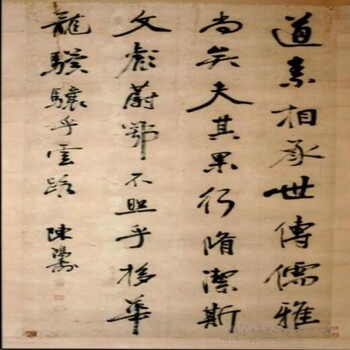 道素相承世傳儒雅
尚矣夫其果行脩潔斯
文彪蔚鄂不照乎栘華
龍驥驤乎雲路 陳鴻壽